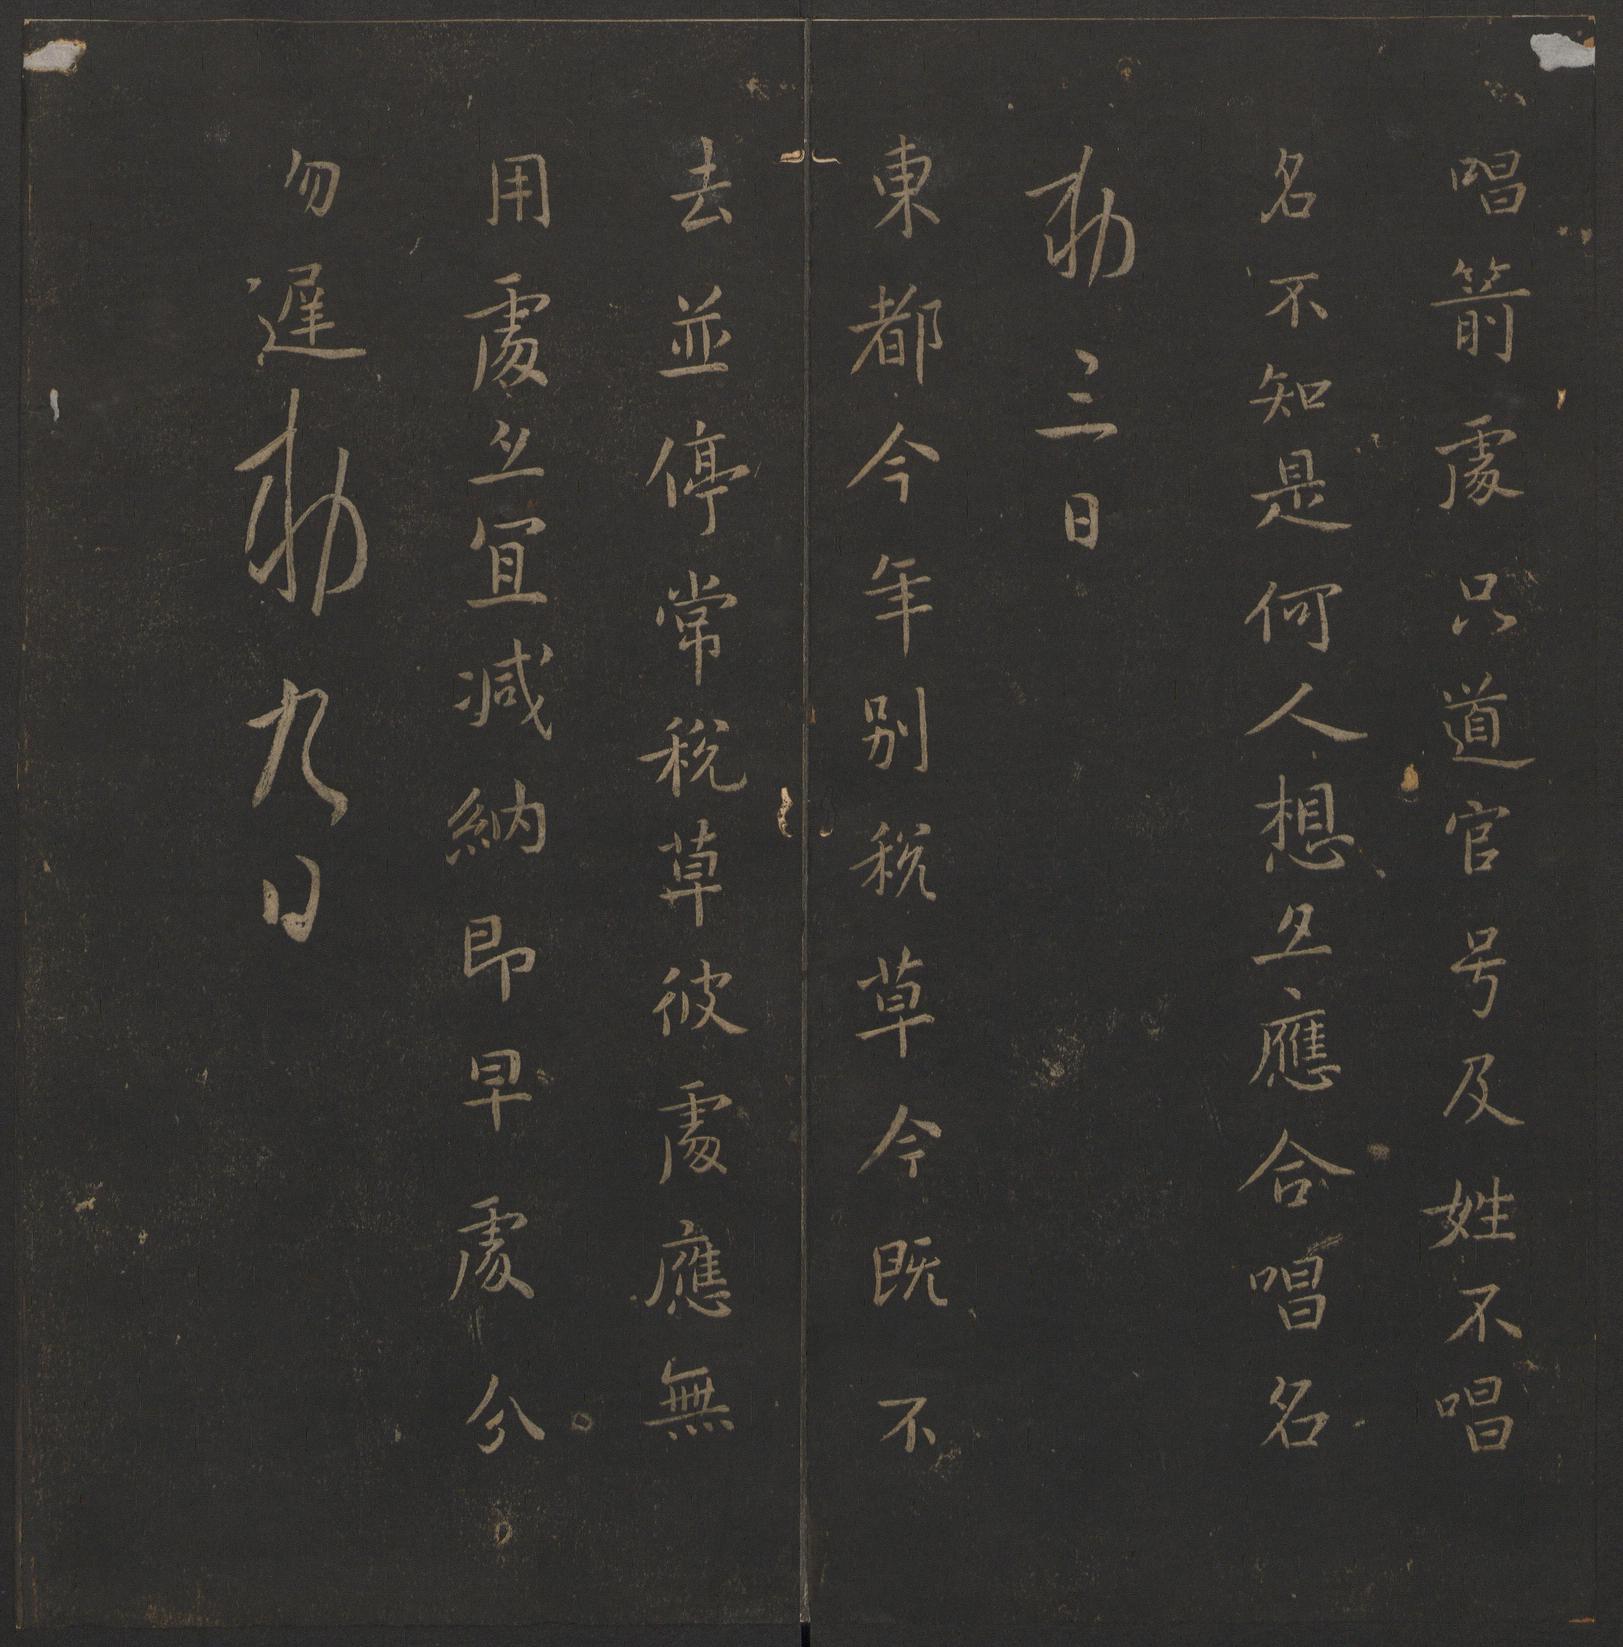 唱箭處只道官号及姓不唱
名不知是何人想亦應合唱名
勅三日
東都今年別稅草今既不
去並停常稅草彼處應無
用處亦宜減納即早處分
勿遲勅九日